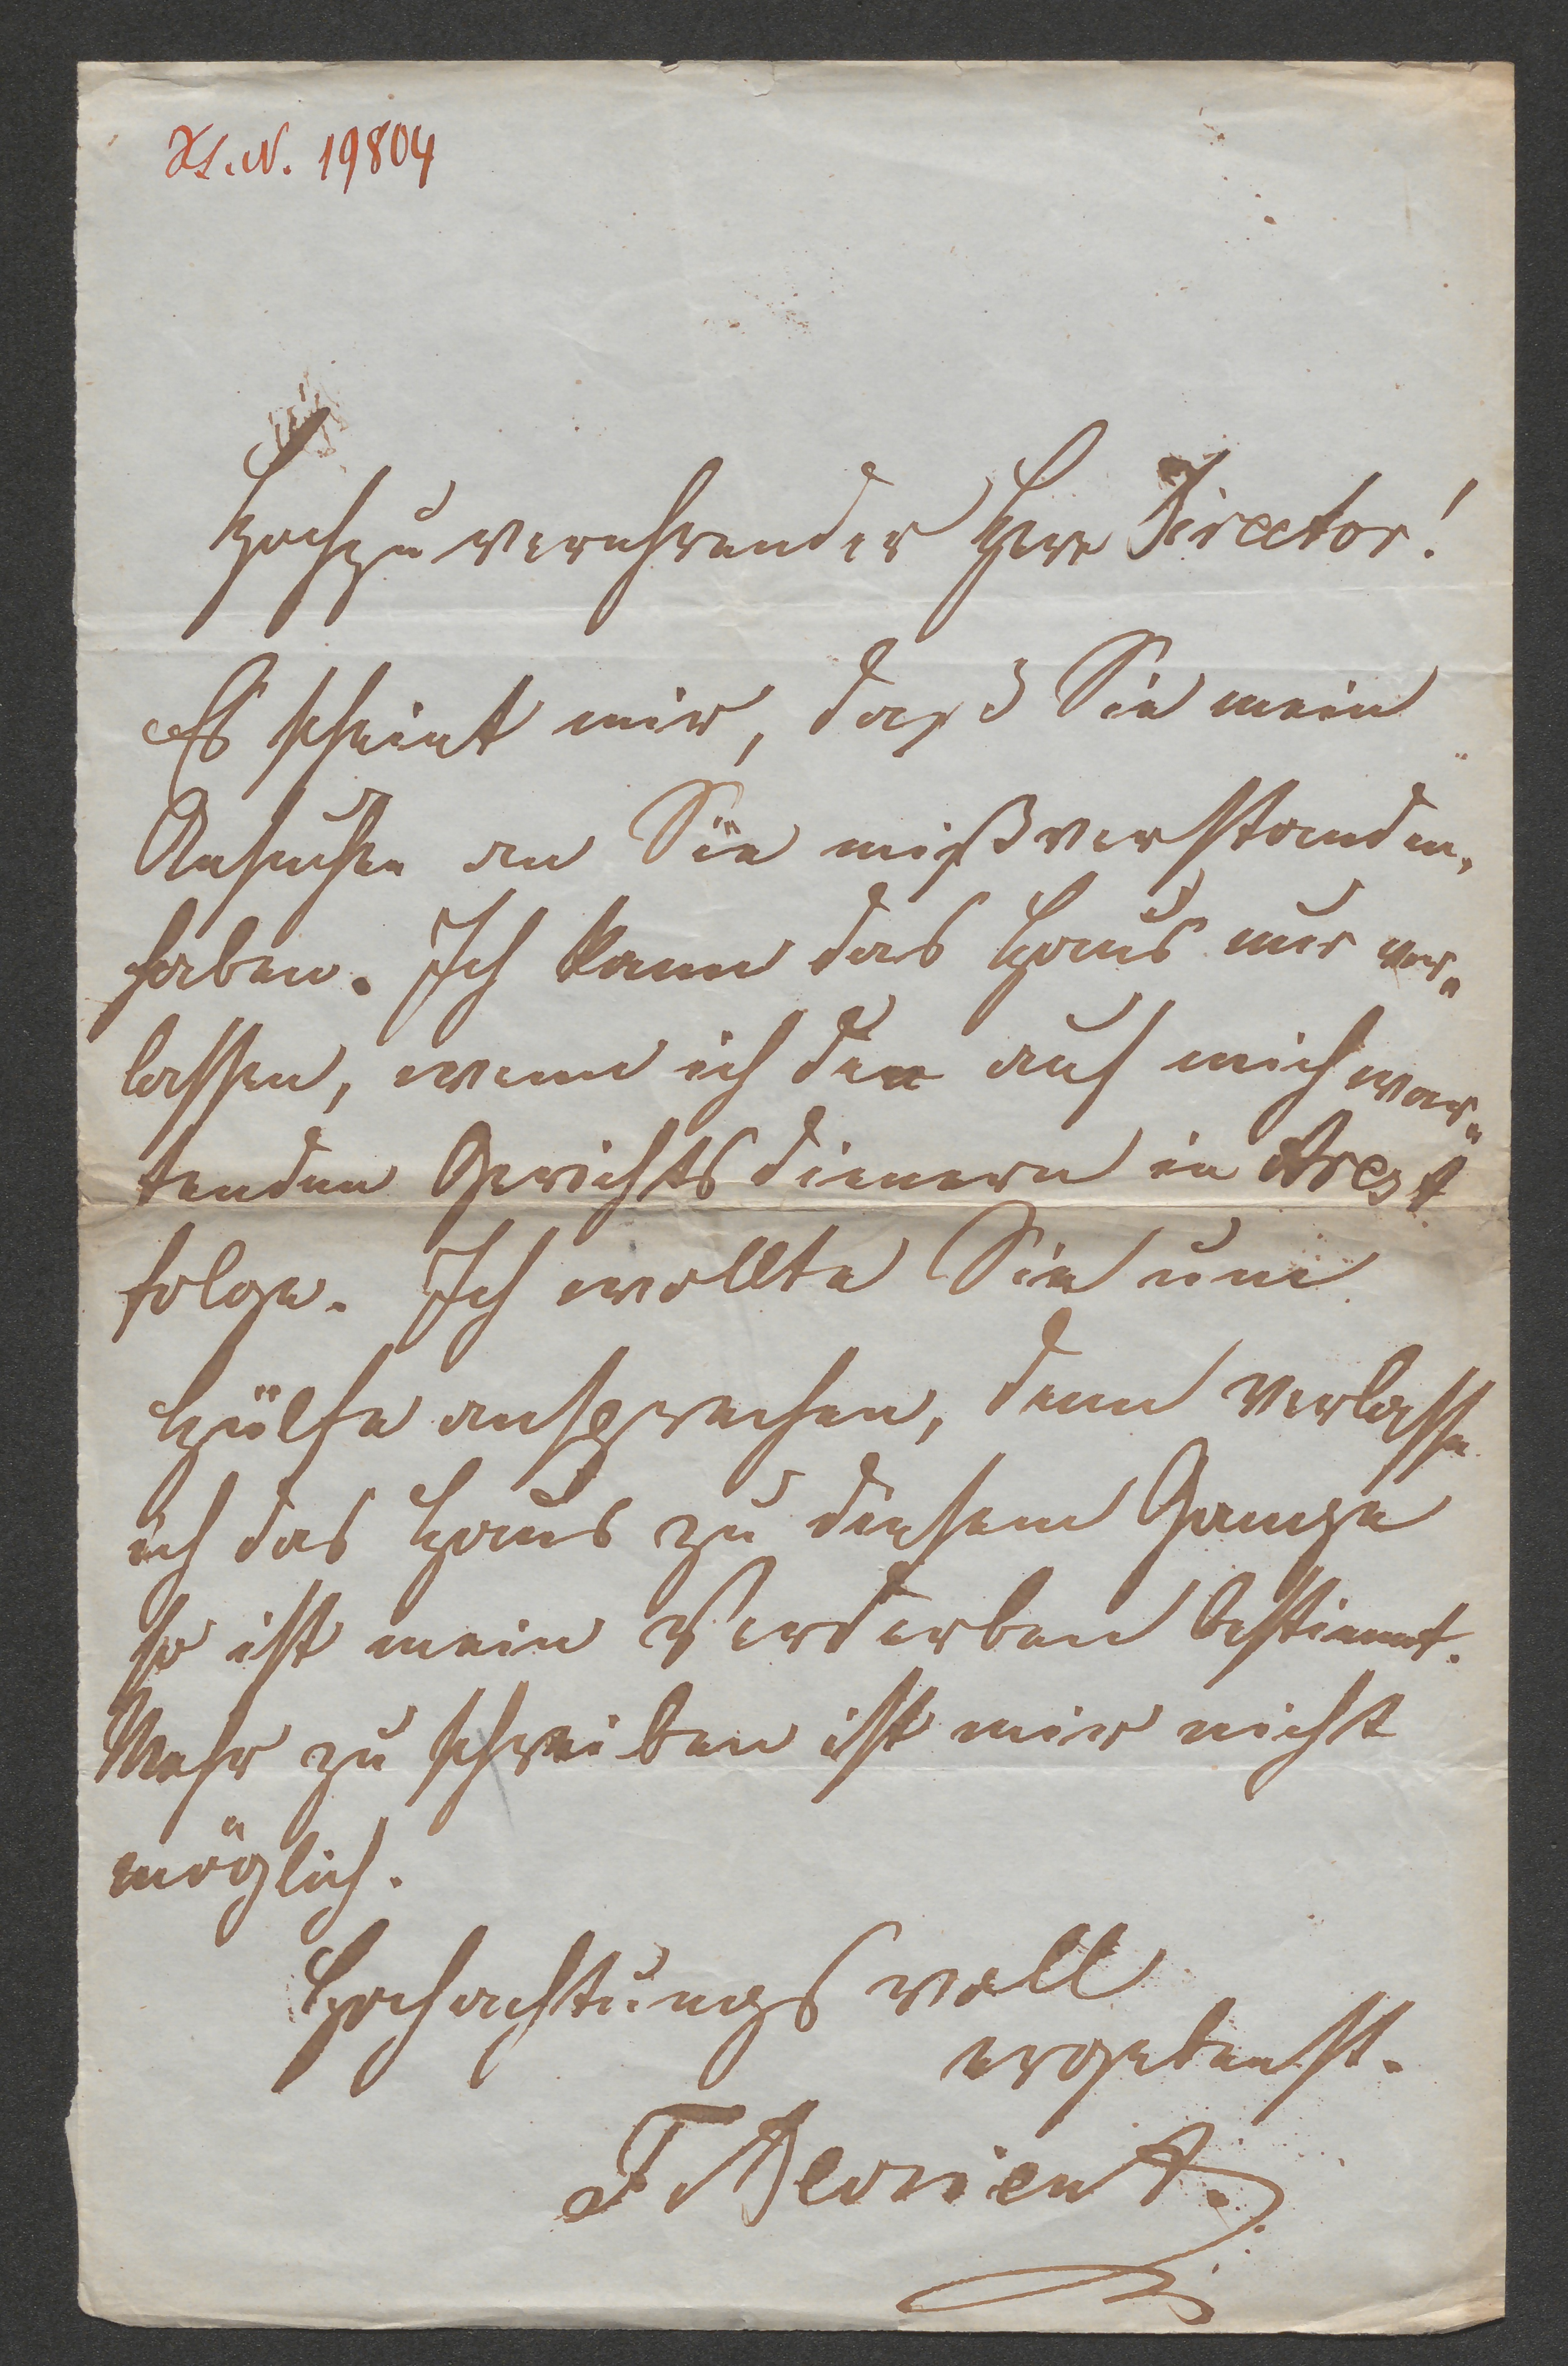 H. I. N. 19804
Hochzuverehrender Herr Director!
Es scheint mir, daß Sie mein
Ansuchen an Sie mißverstanden,
haben. Ich kann das Haus nur ver-
lassen, wenn ich den auf mich war-
tenden Gerichtsdienern in Arest
folge. Ich wollte Sie um
Hülfe ansprechen, denn verlasse
ich das Haus zu diesem Gange
so ist mein Verderben bestimmt.
Mehr zu schreiben ist mir nicht
möglich.
Hochachtungsvoll
ergebenst.
F Devrient.